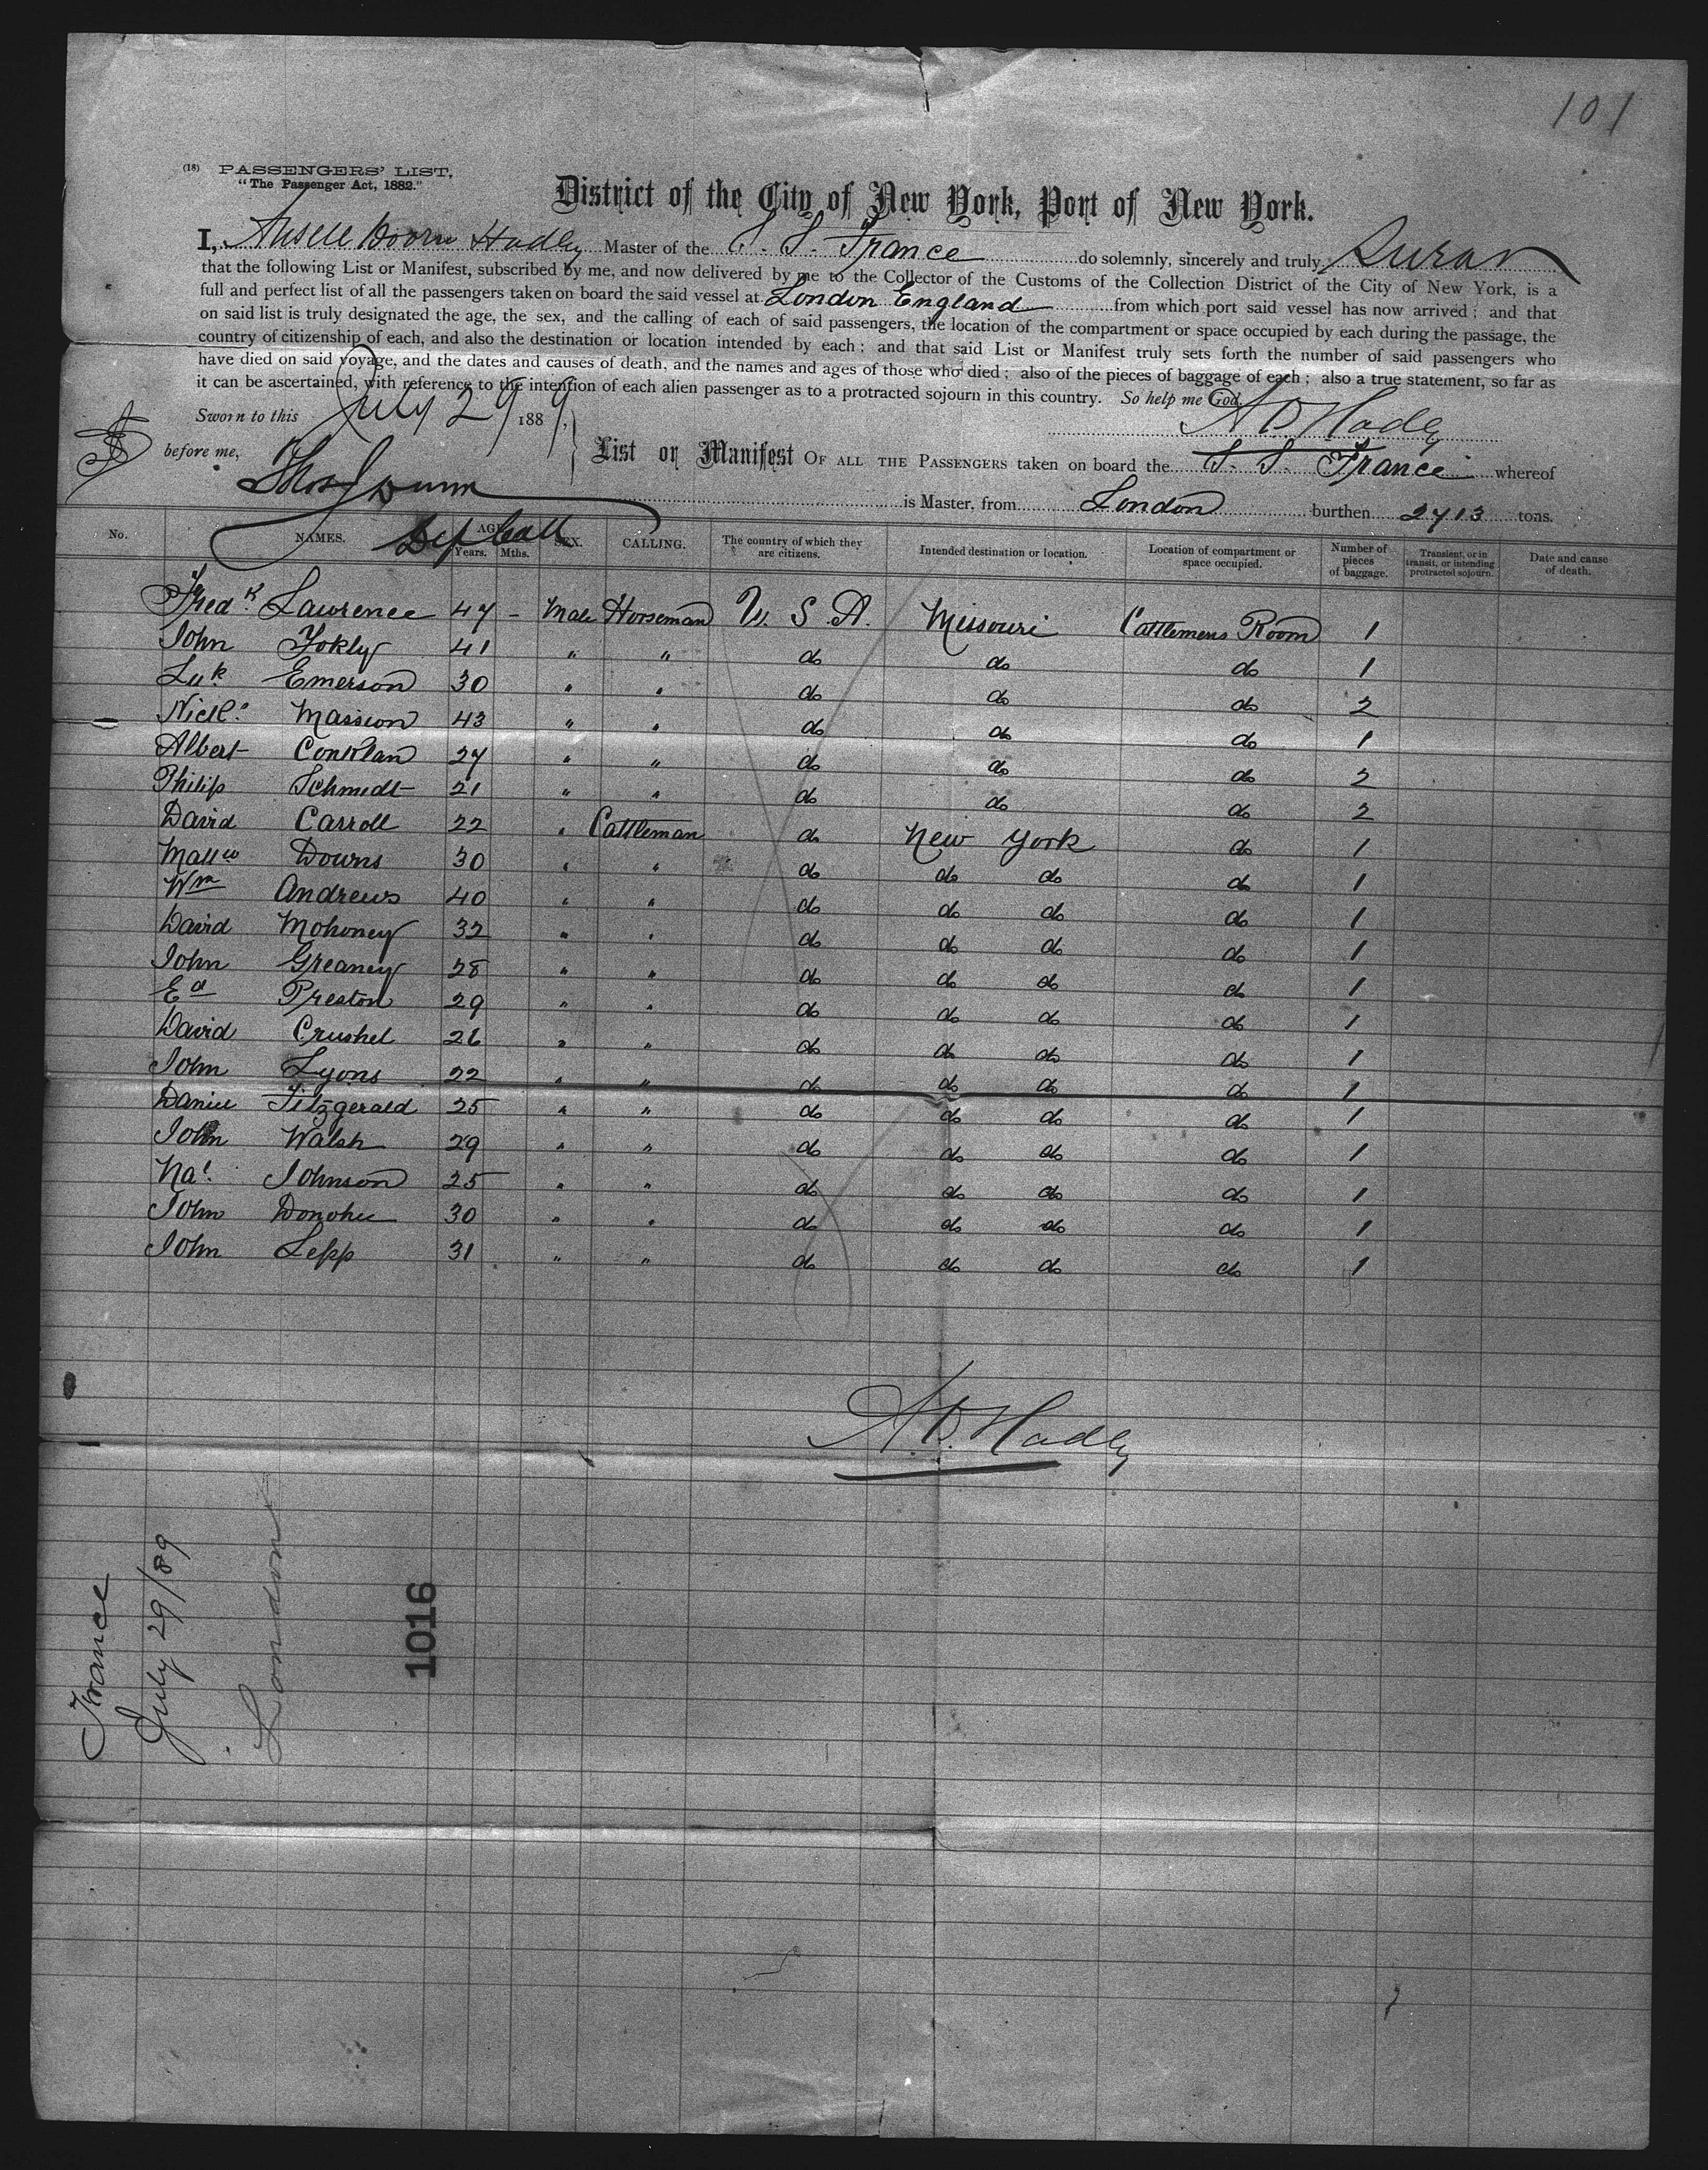 101
(18) PASSENGERS' LIST,
"The Passenger Act, 1882."
District of the City of New York, Port of New York.
I, Hadley Master of the S. S. France do solemnly, sincerely and truly Swear
that the following List or Manifest, subscribed by me, and now delivered by me to the Collector of the Customs of the Collection District of the City of New York, is a
full and perfect list of all the passengers taken on board the said vessel at London England from which port said vessel has now arrived; and that
on said list is truly designated the age, the sex, and the calling of each of said passengers, the location of the compartment or space occupied by each during the passage, the
country of citizenship of each, and also the destination or location intended by each; and that said List or Manifest truly sets forth the number of said passengers who
have died on said voyage, and the dates and causes of death, and the names and ages of those who died; also of the pieces of baggage of each; also a true statement, so far as
it can be ascertained, with reference to the intention of each alien passenger as to a protracted sojourn in this country. So help me God.
Sworn to this July 29 1889, A D Hadley
before me, List or Manifest OF ALL THE PASSENGERS taken on board the S. S. France whereof
Thos J Dunn is Master, from London burthen 2713 tons.
Dep Coll
No. NAMES. AGE. Years. Mths. SEX. CALLING. The country of which they are citizens. Intended destination or location. Location of compartment or space occupied. Number of pieces of baggage. Transient, or in transit, or intending protracted sojourn. Date and cause of death.
Fredk. Lawrence 47 - Male Horseman U. S. A. Missouri Cattlemens Room 1
John Yokly 41 " " do do do 1
Emerson 30 " " do do do 2
Nichs. Massion 43 " " do do do 1
Albert Conklan 27 " " do do do 2
Philip Schmidt 21 " " do do do 2
David Carroll 22 " Cattleman do New York do 1
Mattw Downs 30 " " do do do do 1
Wm Andrews 40 " " do do do do 1
David Mohoney 32 " " do do do do 1
John Greaney 28 " " do do do do 1
Ed Preston 29 " " do do do do 1
David Crushel 26 " " do do do do 1
John Lyons 22 " " do do do do 1
Daniel Fitzgerald 25 " " do do do do 1
John Walsh 29 " " do do do do 1
Nat. Johnson 25 " " do do do do 1
John Donohue 30 " " do do do do 1
John Lepp 31 " " do do do do 1
A. D. Hadley
France
July 29/89
London
1016